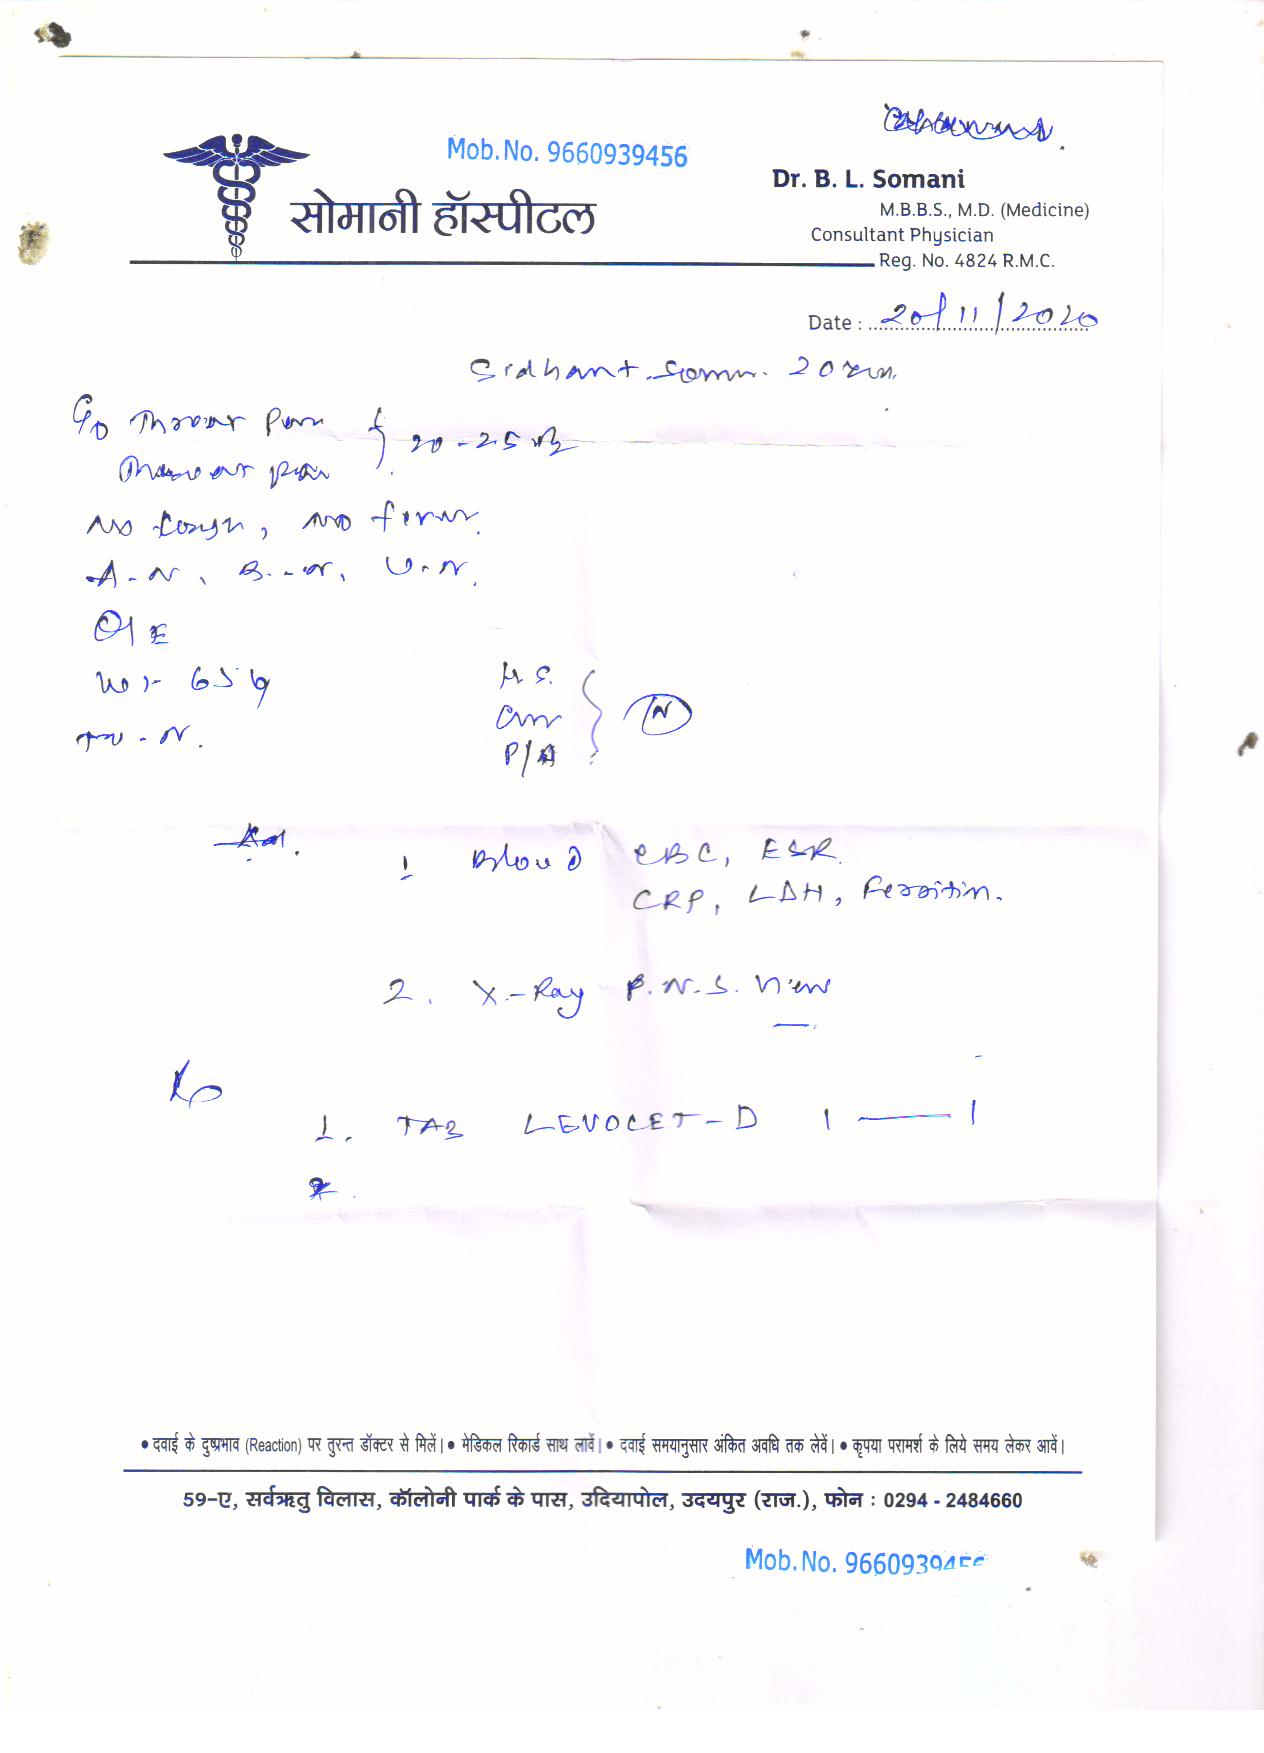 Mob. No. 9660939456
सोमानी हॉस्पीटल
Dr. B. L. Somani
M.B.B.S., M.D. (Medicine)
Consultant Physician
Reg. No. 4824 R.M.C.
Date : 20/11/2020
Sidhant 20
20-25
No Cough, No fever.
A-N, B-N, U-N.
O/E
Wt- 65
P/A
N
1 Blood CBC, ESR.
CRP, LDH, Ferritin.
2. X-Ray P.N.S. View
1. TAB LEVOCET-D 1 — 1
• दवाई के दुष्प्रभाव (Reaction) पर तुरन्त डॉक्टर से मिलें। • मेडिकल रिकार्ड साथ लावें। • दवाई समयानुसार अंकित अवधि तक लेवें। • कृपया परामर्श के लिये समय लेकर आवें।
59-ए, सर्वऋतु विलास, कॉलोनी पार्क के पास, उदियापोल, उदयपुर (राज.), फोन : 0294 - 2484660
Mob. No. 9660939456